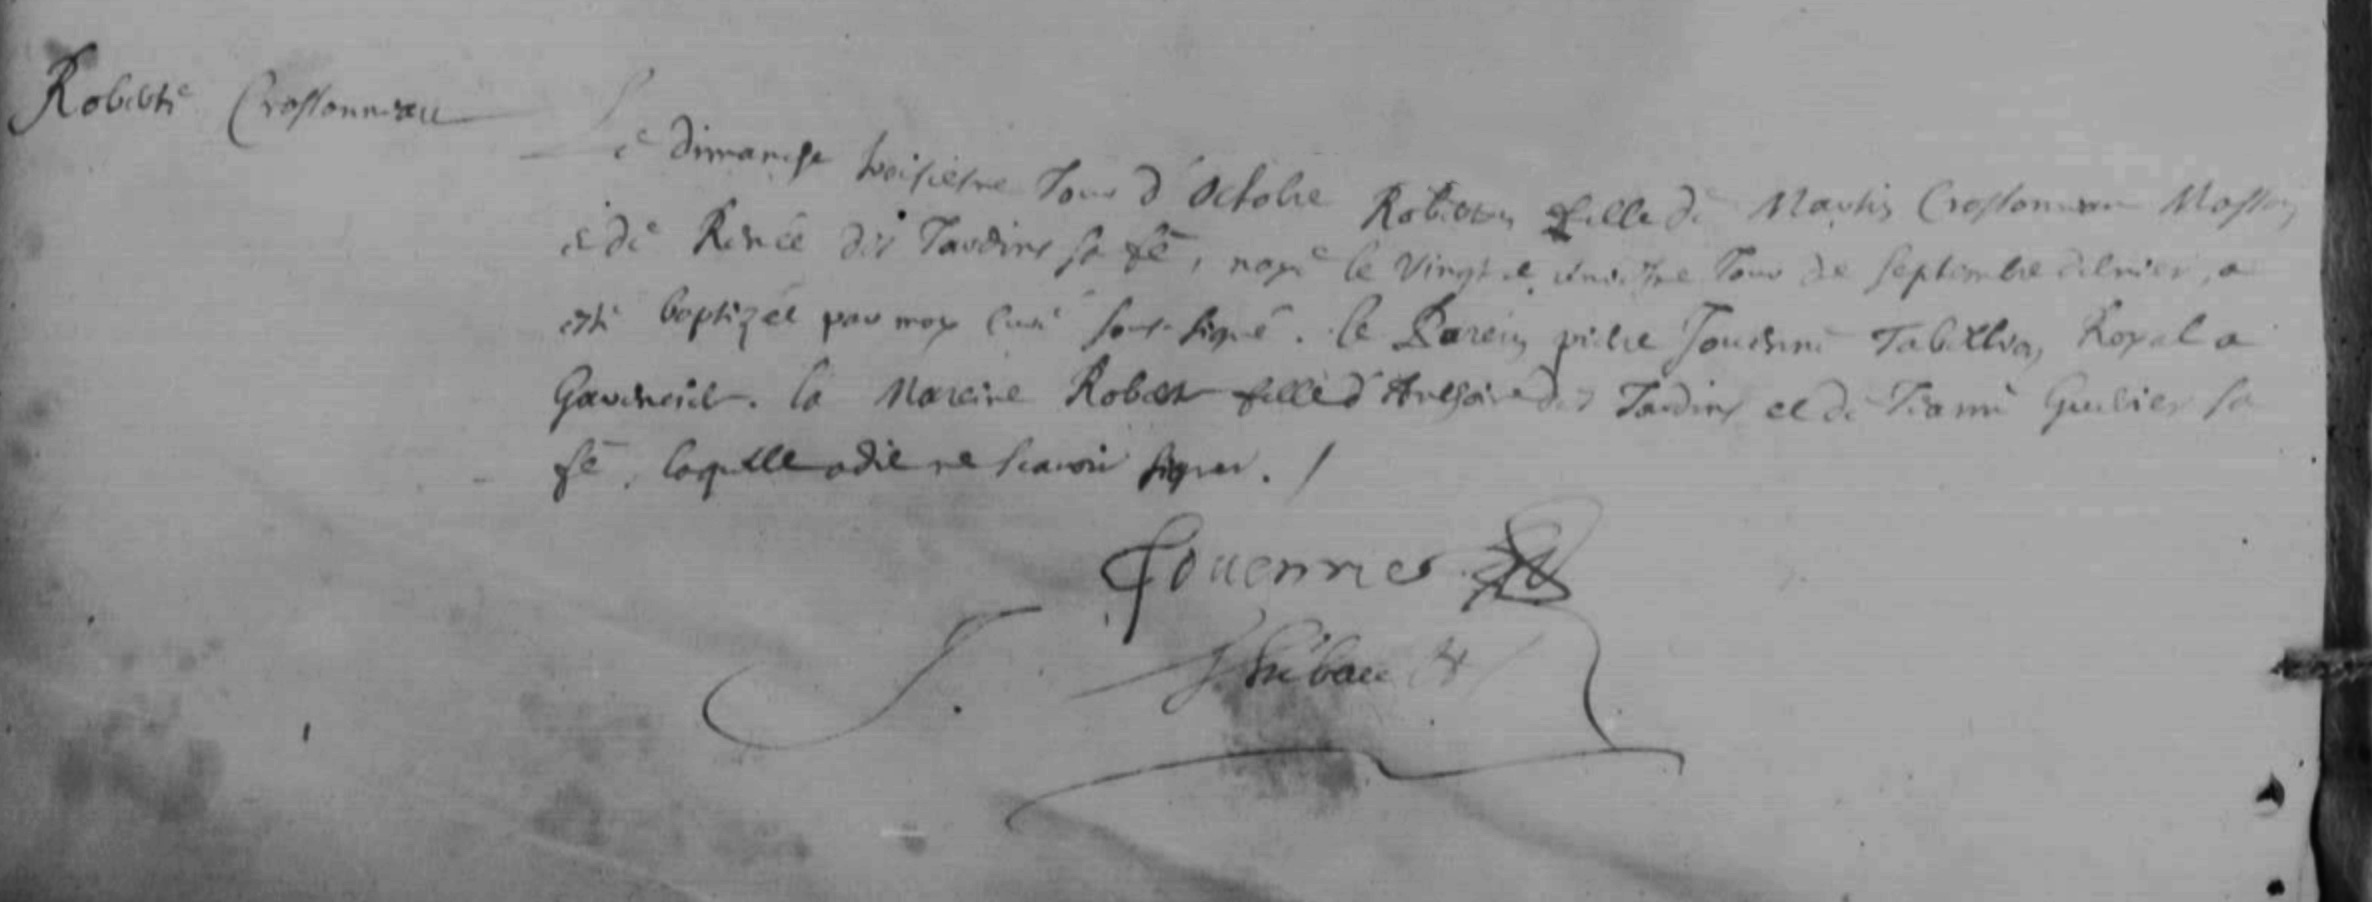 Roberte Crossonneau
Le dimanche troisiesme Jour d'Octobre Roberte fille de Martin Crossonneau Masson
et de Renée des Jardins sa fē, naye le vingt e unietme Jour de septembre dernier, a
esté baptizée par moy curé sous signé. le Parein pierre Jouenne Tabellion Royal a
la Mareine Roberte fille d' Anthoine des Jardins et de Jeanne sa
fē, laquelle a dit ne scavoir signer. /
Jouennes
Thibau